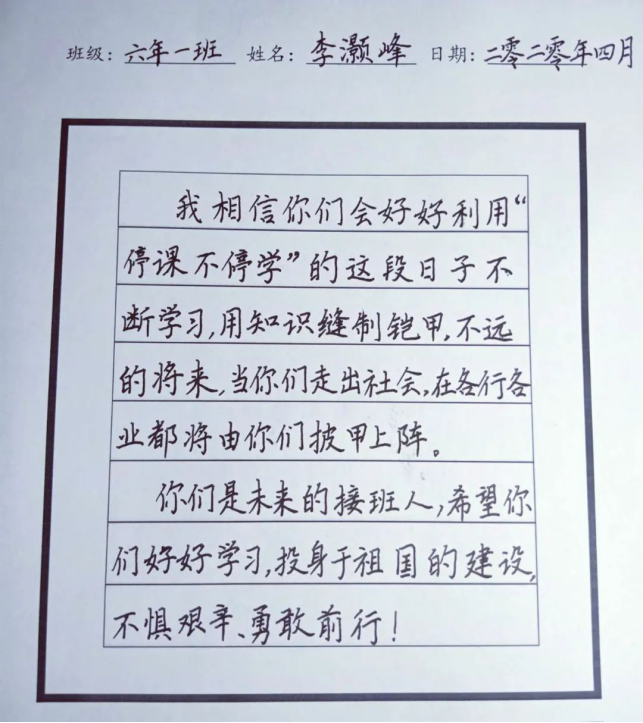 班级：六年一班 姓名：李灏峰 日期：二零二零年四月
我相信你们会好好利用“
停课不停学”的这段日子不
断学习，用知识缝制铠甲，不远
的将来，当你们走出社会，在各行各
业都将由你们披甲上阵。
你们是未来的接班人，希望你
们好好学习，投身于祖国的建设，
不惧艰辛、勇敢前行！